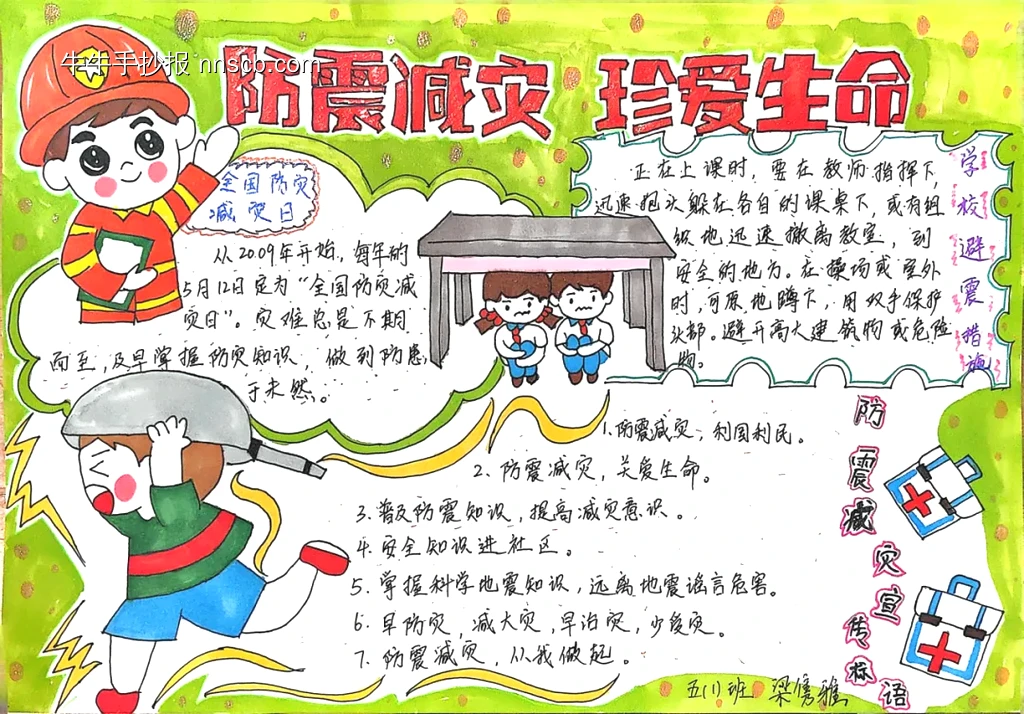 牛牛手抄报 nnscb.com
防震减灾 珍爱生命
全国防灾
减灾日
从2009年开始,每年的
5月12日定为“全国防灾减
灾日”。灾难总是不期
而至,及早掌握防灾知识,做到防患
于未然。
学校避震措施
正在上课时,要在教师指挥下,
迅速抱头躲在各自的课桌下,或有组
织地迅速撤离教室,到
安全的地方。在操场或室外
时,可原地蹲下,用双手保护
头部。避开高大建筑物或危险
物。
防震减灾宣传标语
1.防震减灾,利国利民。
2.防震减灾,关爱生命。
3.普及防震知识,提高减灾意识。
4.安全知识进社区。
5.掌握科学地震知识,远离地震谣言危害。
6.早防灾,减大灾,早治灾,少受灾。
7.防震减灾,从我做起。
五(1)班 梁隽雅